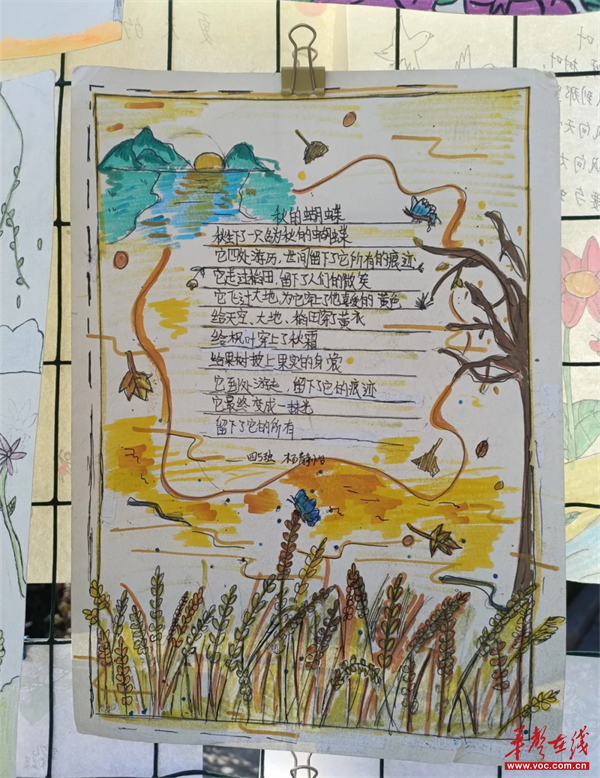 秋的蝴蝶
秋生了一只名为秋的蝴蝶
它四处游历,世间留下了它所有的痕迹,
它走过稻田,留下了人们的微笑
它飞过大地,为它穿上了他喜爱的黄色
给天空、大地、稻田穿了黄衣
给枫叶穿上了秋霜
给果树披上果实的身裳
它到处游走,留下了它的痕迹
它最终变成一抹光
留下了它的所有
华声在线
www.voc.com.cn